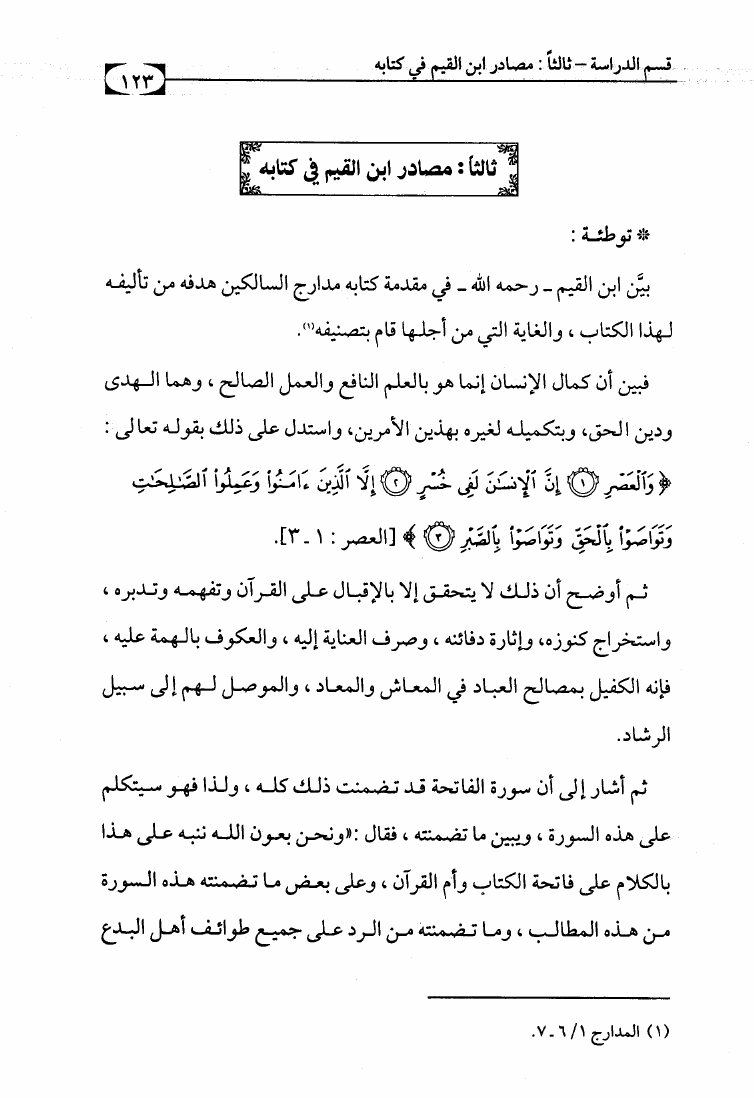 قسم الدراسة – ثالثاً : مصادر ابن القيم في كتابه
١٢٣
ثالثاً : مصادر ابن القيم في كتابه
* توطئـة :
بيَّن ابن القيم ـ رحمه الله ـ في مقدمة كتابه مدارج السالكين هدفه من تأليفـه
لـهذا الكتاب ، والغاية التي من أجلـها قام بتصنيفه(١).
فبين أن كمال الإنسان إنما هو بالعلم النافع والعمل الصالح ، وهما الـهدى
ودين الحق، وبتكميلـه لغيره بهذين الأمرين، واستدل على ذلك بقولـه تعالى :
﴿ وَٱلْعَصْرِ ۝١ إِنَّ ٱلْإِنسَـٰنَ لَفِى خُسْرٍ ۝٢ إِلَّا ٱلَّذِينَ ءَامَنُوا۟ وَعَمِلُوا۟ ٱلصَّـٰلِحَـٰتِ
وَتَوَاصَوْا۟ بِٱلْحَقِّ وَتَوَاصَوْا۟ بِٱلصَّبْرِ ۝٣ ﴾ [العصر : ١ ـ ٣].
ثـم أوضـح أن ذلـك لا يتحقـق إلا بالإقبـال علـى القـرآن وتفهمـه وتـدبره ،
واستخراج كنوزه، وإثارة دفائنه ، وصرف العناية إليه ، والعكوف بالـهمة عليه ،
فإنه الكفيل بمصالح العباد في المعاش والمعاد ، والموصـل لـهم إلى سـبيل
الرشاد.
ثم أشار إلى أن سورة الفاتحة قـد تـضمنت ذلـك كلـه ، ولـذا فهـو سـيتكلم
على هذه السورة ، ويبين ما تضمنته ، فقال :«ونحـن بعـون اللـه ننبـه علـى هـذا
بالكلام على فاتحة الكتاب وأم القرآن ، وعلى بعـض مـا تـضمنته هـذه الـسورة
مـن هـذه المطالـب ، ومـا تـضمنته مـن الـرد علـى جميـع طوائـف أهـل البـدع
(١) المدارج ١/ ٦ـ٧.